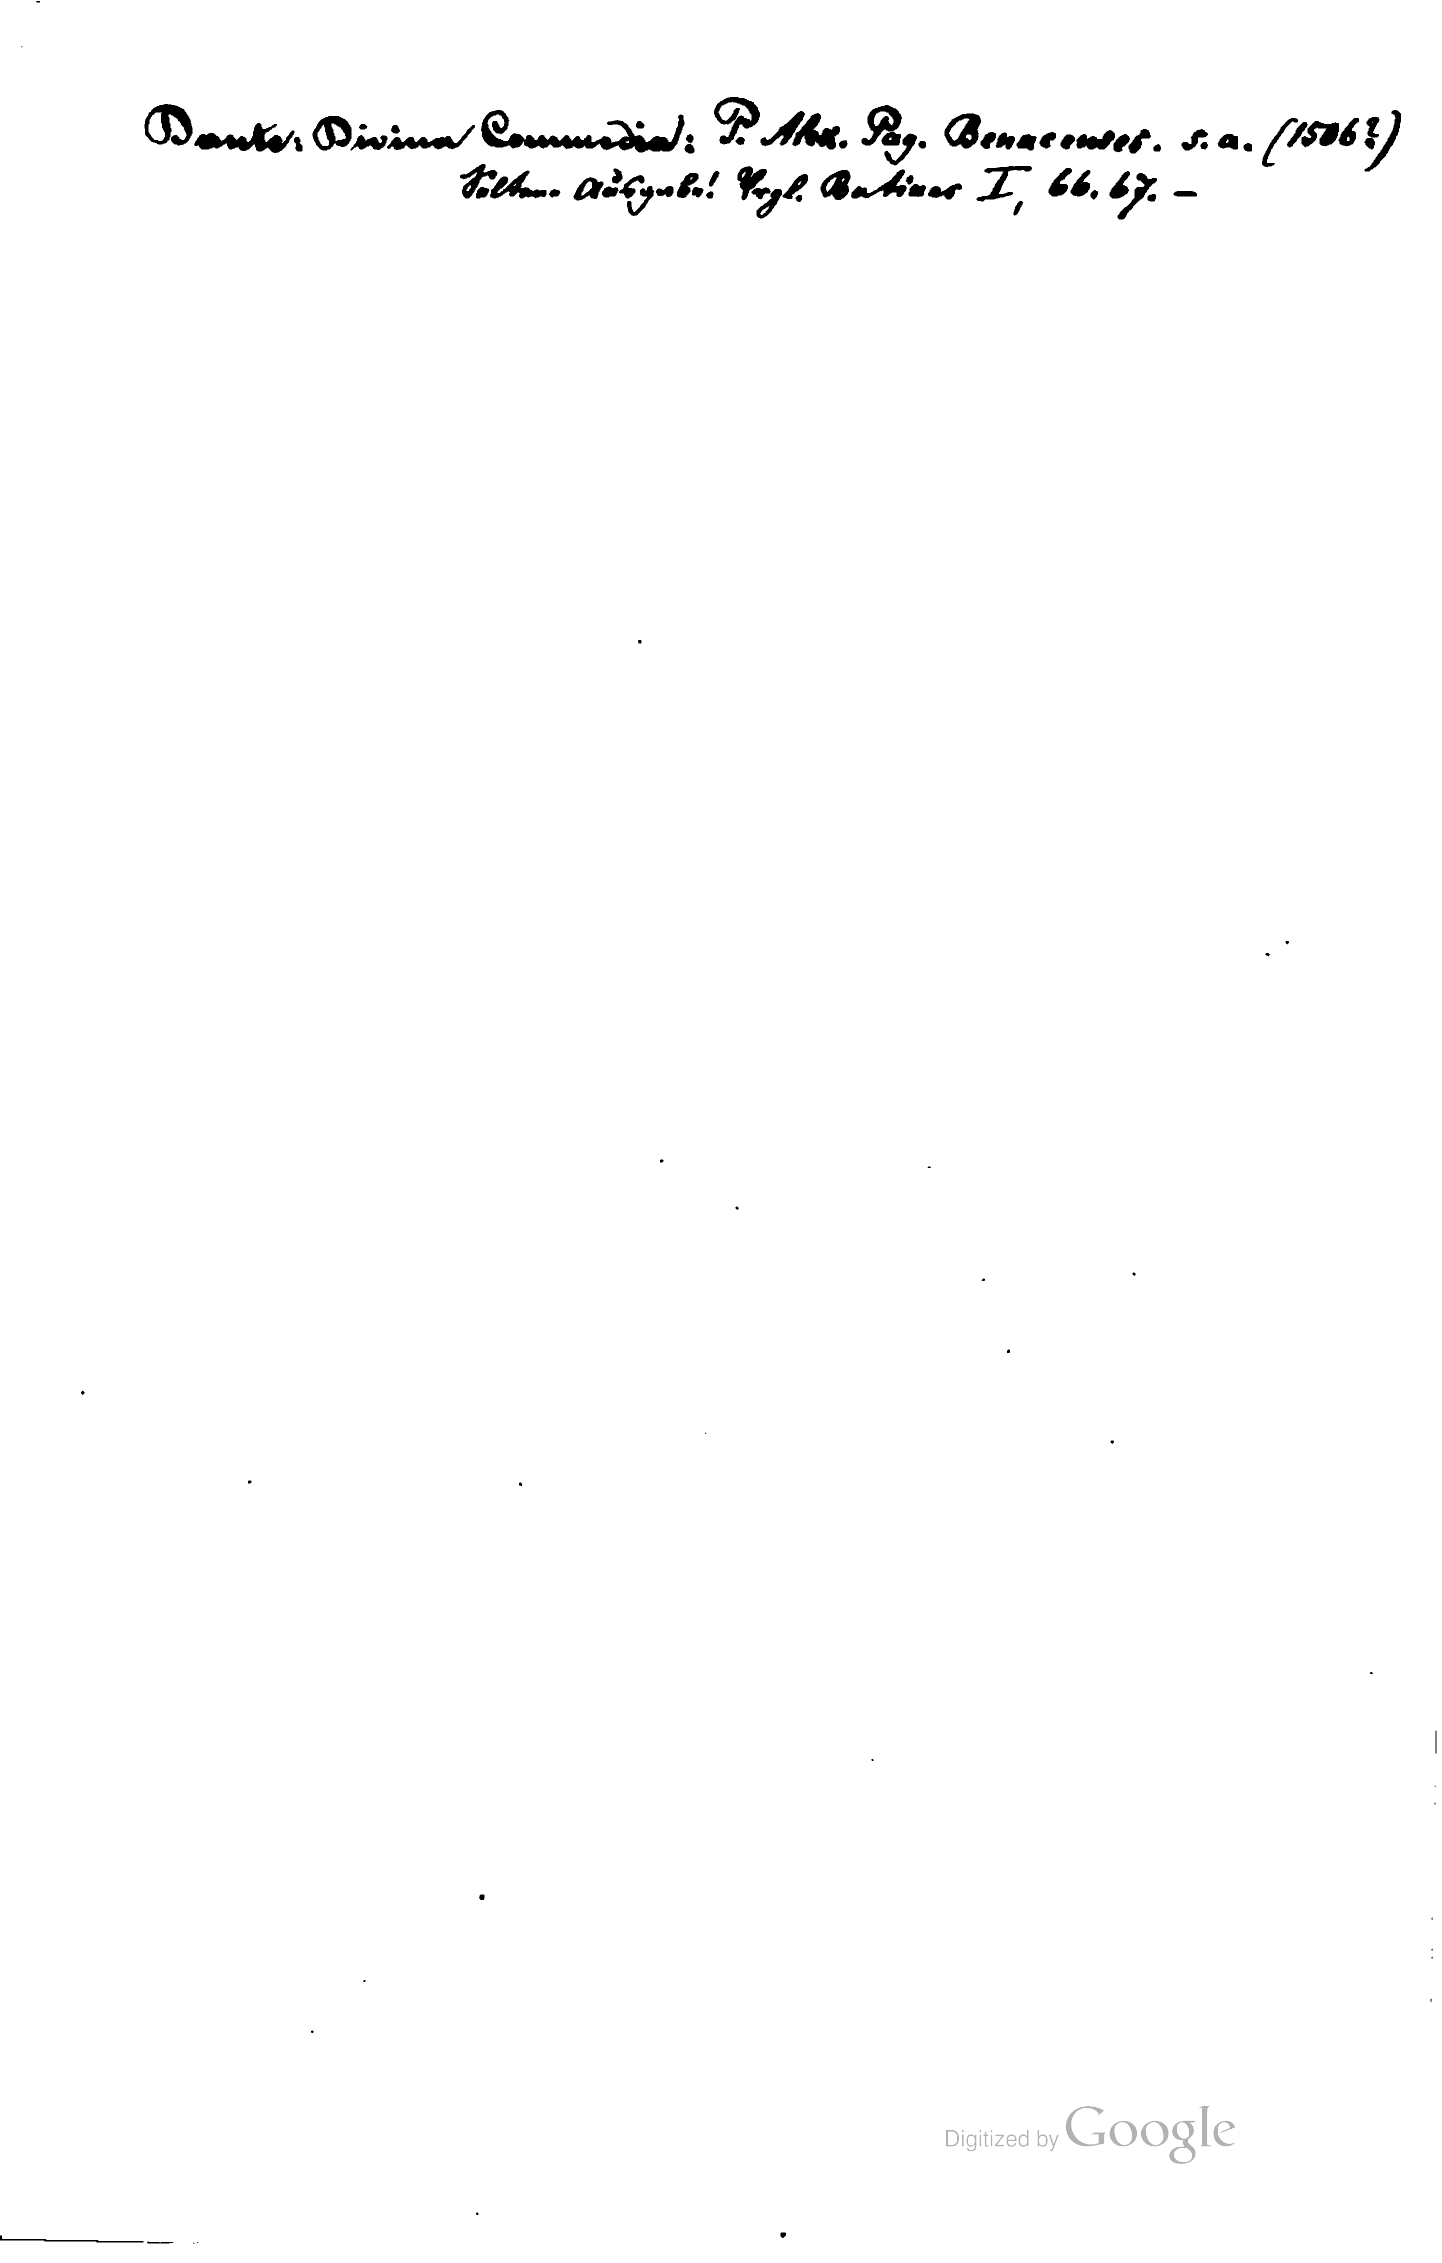 Dante: Divina Commedia: P. Alex. Pag. Benacenses. s. a. (1506?)
Seltene Ausgabe! Vrgl. Batines I, 66. 67. –
Digitized by Google